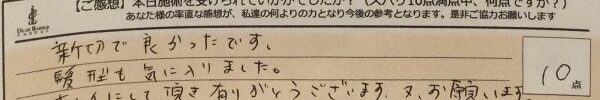 【ご感想】本日施術を受けられていかがでしたか？（ズバリ10点満点中、何点ですか？）
あなた様の率直な感想が、私達の何よりの力となり今後の参考となります。是非ご協力お願いします
親切で良かったです。
髪型も気に入りました。
10点
にして頂き有りがとうございます。又、お願いします